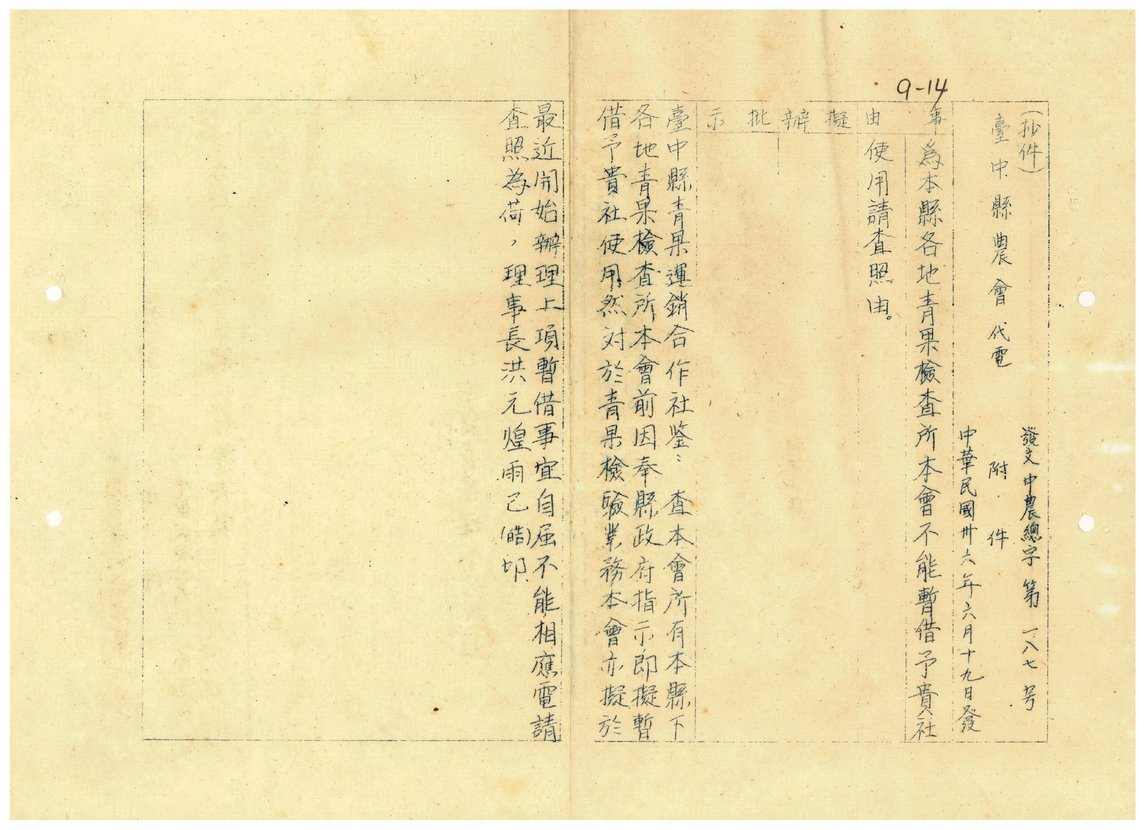 9-14
（抄件）
臺中縣農會代電
發文中農總字第一八七号
附件
中華民國卅六年六月十九日發
事由
為本縣各地青果檢查所本會不能暫借予貴社
使用請查照由。
擬辦
批示
臺中縣青果運銷合作社鉴：查本會所有本縣下
各地青果檢查所本會前因奉縣政府指示即擬暫
借予貴社使用，然対於青果檢驗業務本會亦擬於
最近開始辦理上項暫借事宜自屆不能相應電請
查照為荷，理事長洪元煌雨己(皓)印